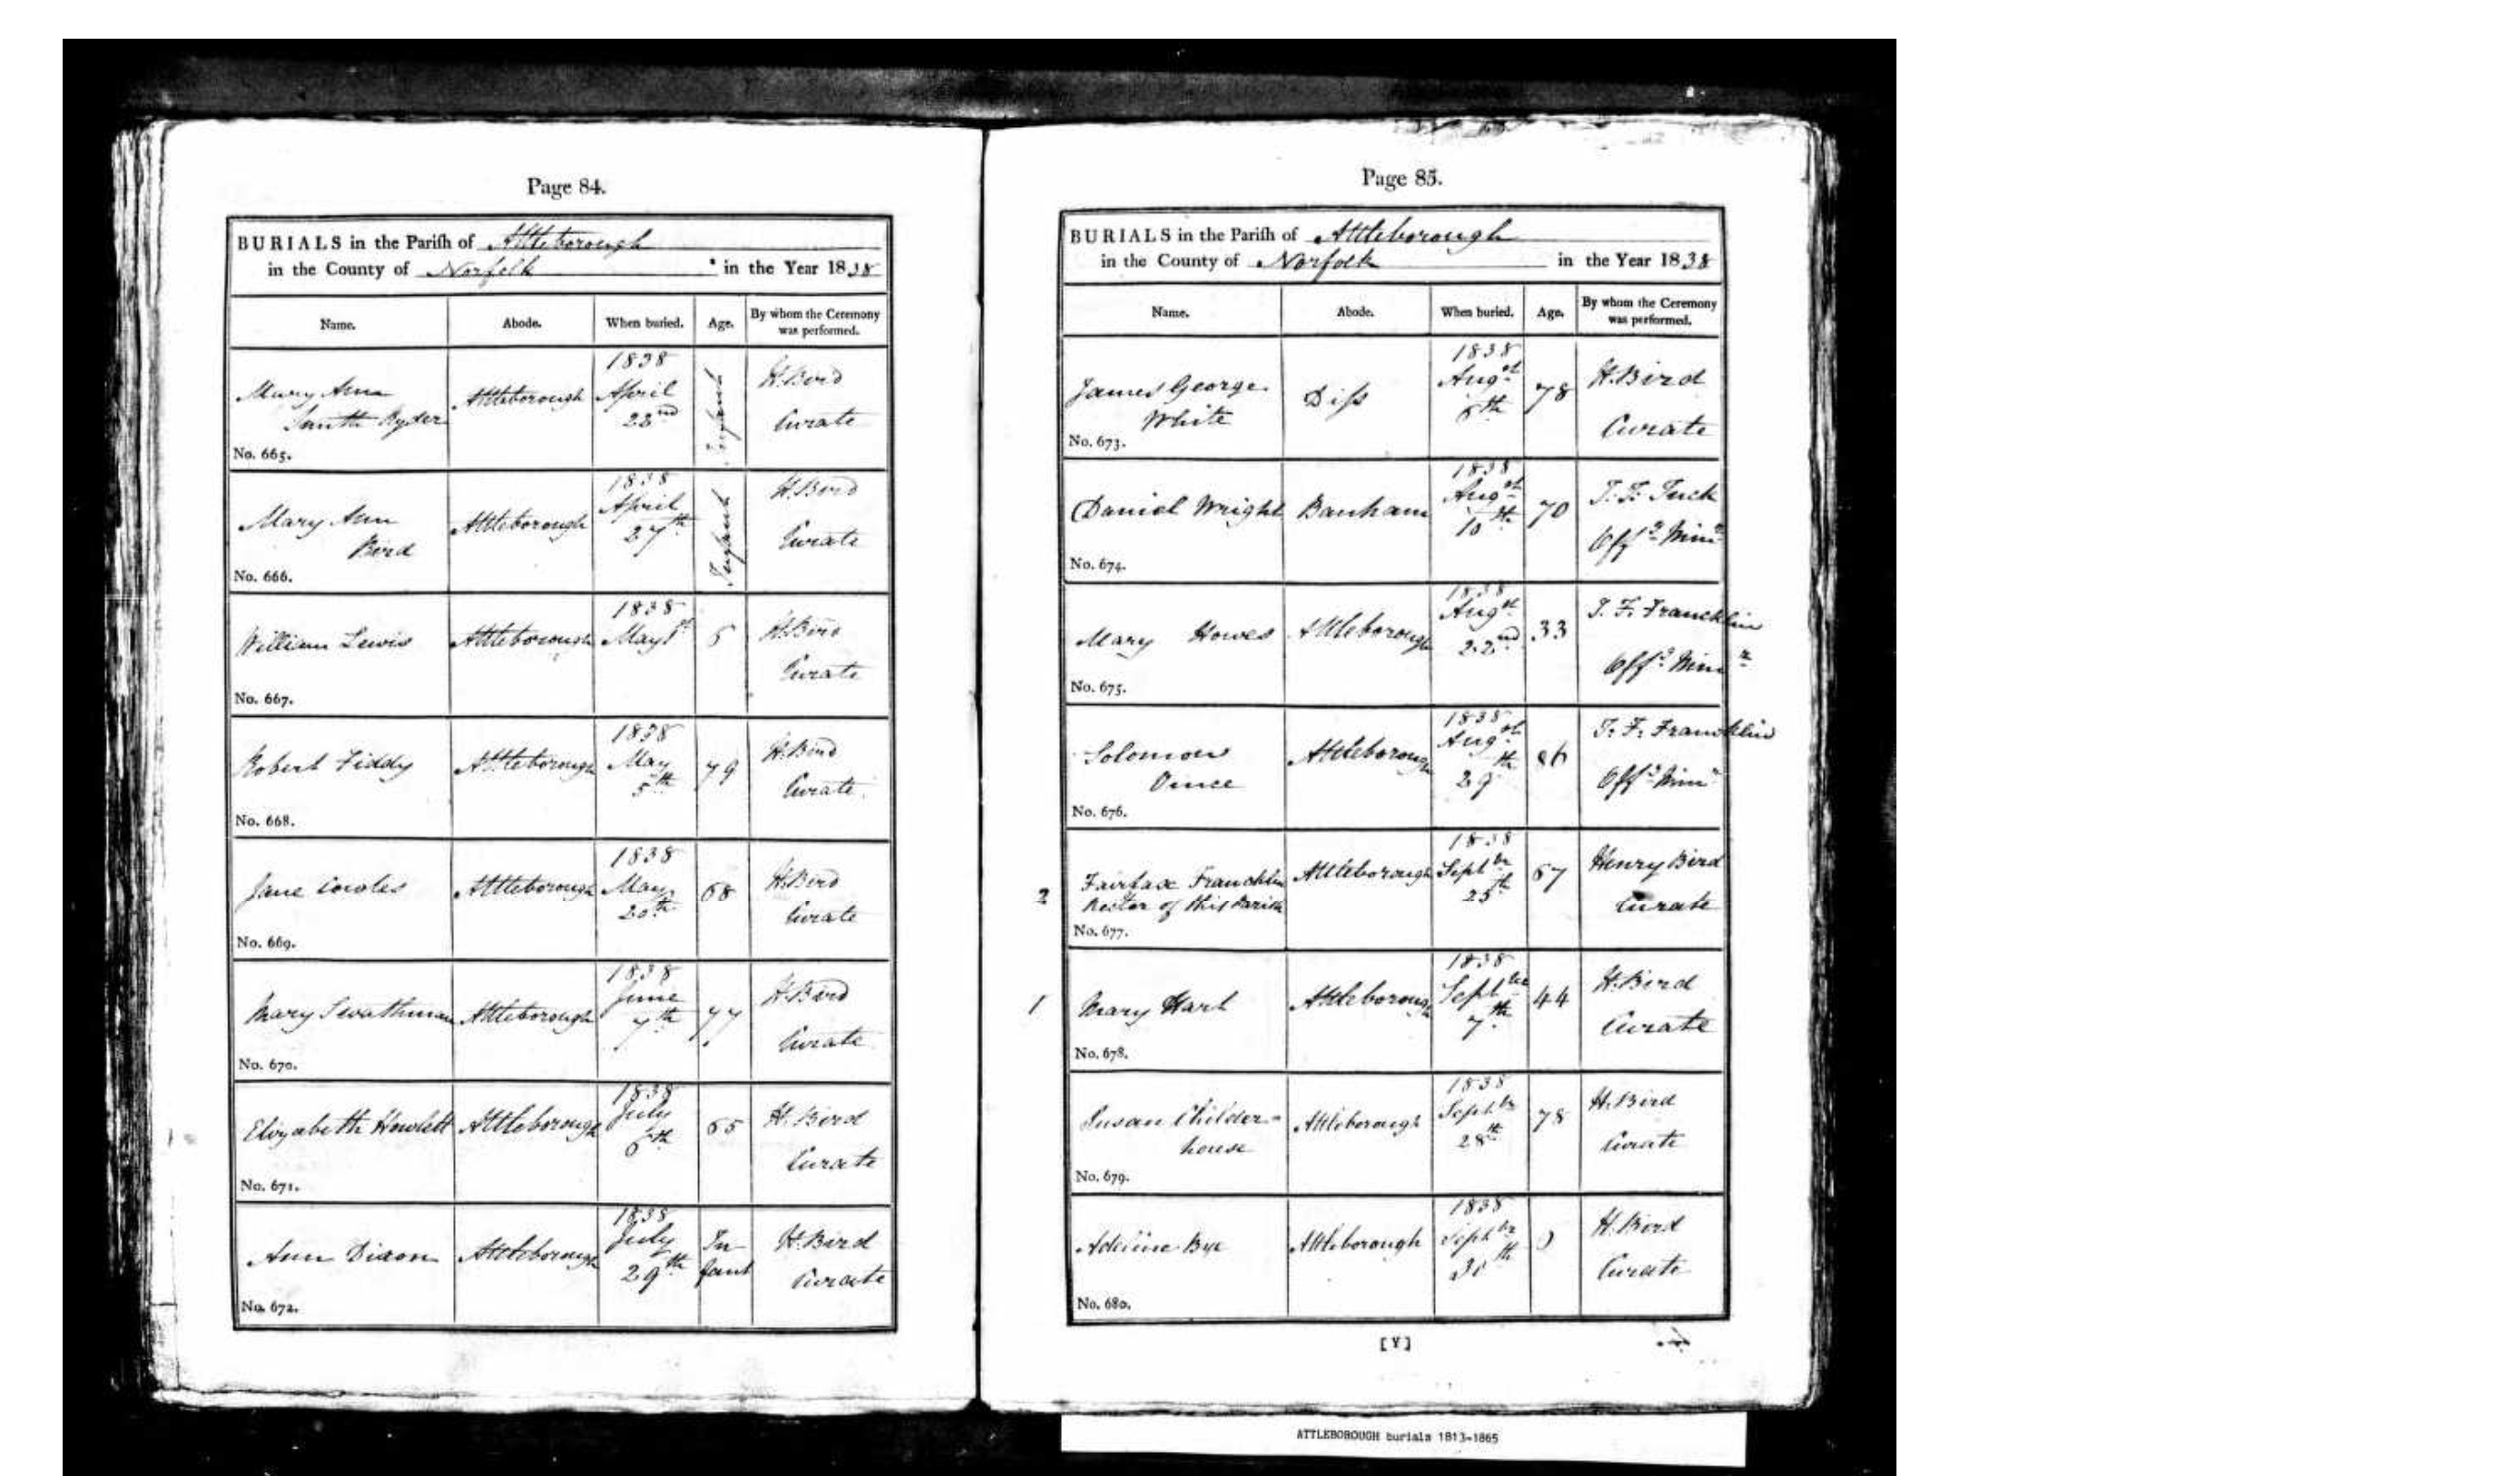 Page 84.
BURIALS in the Parish of Attleborough
in the County of Norfolk in the Year 1838
Name. Abode. When buried. Age. By whom the Ceremony was performed.
1838
Mary Ann Attleborough April Infant H. Bird
Smith Ryder 22nd Curate
No. 665.
1838
Mary Ann Attleborough April Infant H. Bird
Bird 27th Curate
No. 666.
1838
William Lewis Attleborough May 1st H. Bird
Curate
No. 667.
1838
Robert Fiddy Attleborough May 79 H. Bird
5th Curate
No. 668.
1838
Jane Cowles Attleborough May 68 H. Bird
20th Curate
No. 669.
1838
Mary Swathman Attleborough June 77 H. Bird
7th Curate
No. 670.
1838
Elizabeth Howlett Attleborough July 65 H. Bird
6th Curate
No. 671.
1838
Ann Dixon Attleborough July In- H. Bird
29th fant Curate
No. 672.
Page 85.
BURIALS in the Parish of Attleborough
in the County of Norfolk in the Year 1838
Name. Abode. When buried. Age. By whom the Ceremony was performed.
1838
James George Diss Augst 78 H. Bird
White 6th Curate
No. 673.
1838
Daniel Wright Banham Augst 70 T. F. Tuck
10th Offg Minr
No. 674.
1838
Mary Howes Attleborough Augst 33 T. F. Francklin
22nd Offg Minr
No. 675.
1838
Solomon Attleborough Augst 86 T. F. Francklin
Vince 29th Offg Minr
No. 676.
1838
2 Fairfax Francklin Attleborough Septbr 67 Henry Bird
Rector of this Parish 25th Curate
No. 677.
1838
1 Mary Hart Attleborough Septbr 44 H. Bird
7th Curate
No. 678.
1838
Susan Childer= Attleborough Septbr 78 H. Bird
house 28th Curate
No. 679.
1838
Bye Attleborough Septbr H. Bird
30th Curate
No. 680.
[Y]
ATTLEBOROUGH burials 1813-1865